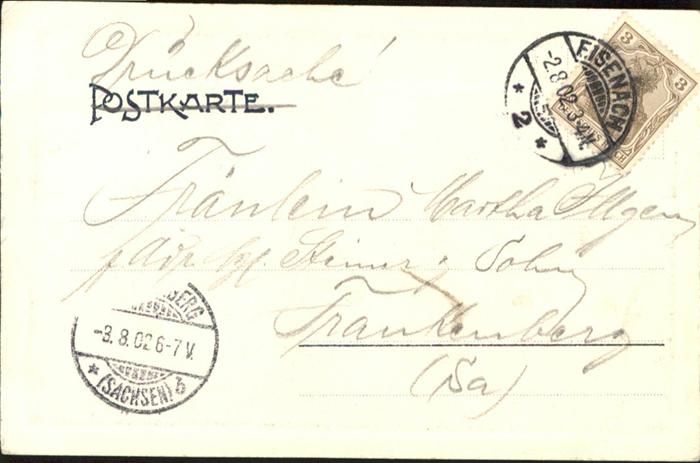 Drucksache
POSTKARTE.
3
3
EISENACH
-2.8.02.3-4N.
* 2 *
Fräulein Martha Illgen
p. Adr. Steiner & Sohn
Frankenberg
(Sa)
BERG
-3.8.02 6-7 V.
* (SACHSEN) b